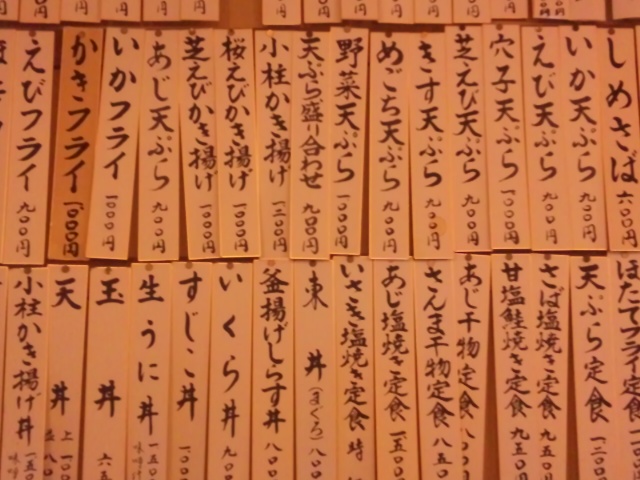 しめさば 六〇〇円
いか天ぷら 九〇〇円
えび天ぷら 九〇〇円
穴子天ぷら 一〇〇〇円
芝えび天ぷら 九〇〇円
きす天ぷら 九〇〇円
めごち天ぷら 九〇〇円
野菜天ぷら 一〇〇〇円
天ぷら盛り合わせ 九〇〇円
小柱かき揚げ 一二〇〇円
桜えびかき揚げ 一〇〇〇円
芝えびかき揚げ 一〇〇〇円
あじ天ぷら 九〇〇円
いかフライ 一〇〇〇円
かきフライ 一、〇〇〇円
えびフライ 九〇〇円
ほたてフライ定食
天ぷら定食 一二〇〇
さば塩焼き定食 九五〇円
甘塩鮭焼き定食 九五〇円
あじ干物定食
さんま干物定食 八五〇
あじ塩焼き定食 一五〇
いさき塩焼き定食 時
東丼(まぐろ) 八〇〇
釜揚げしらす丼 八〇〇
いくら丼 九〇
すじこ丼 一〇〇〇
生うに丼 一五〇
玉丼 六五
天丼 上一〇〇 並八〇
小柱かき揚げ丼 一五〇